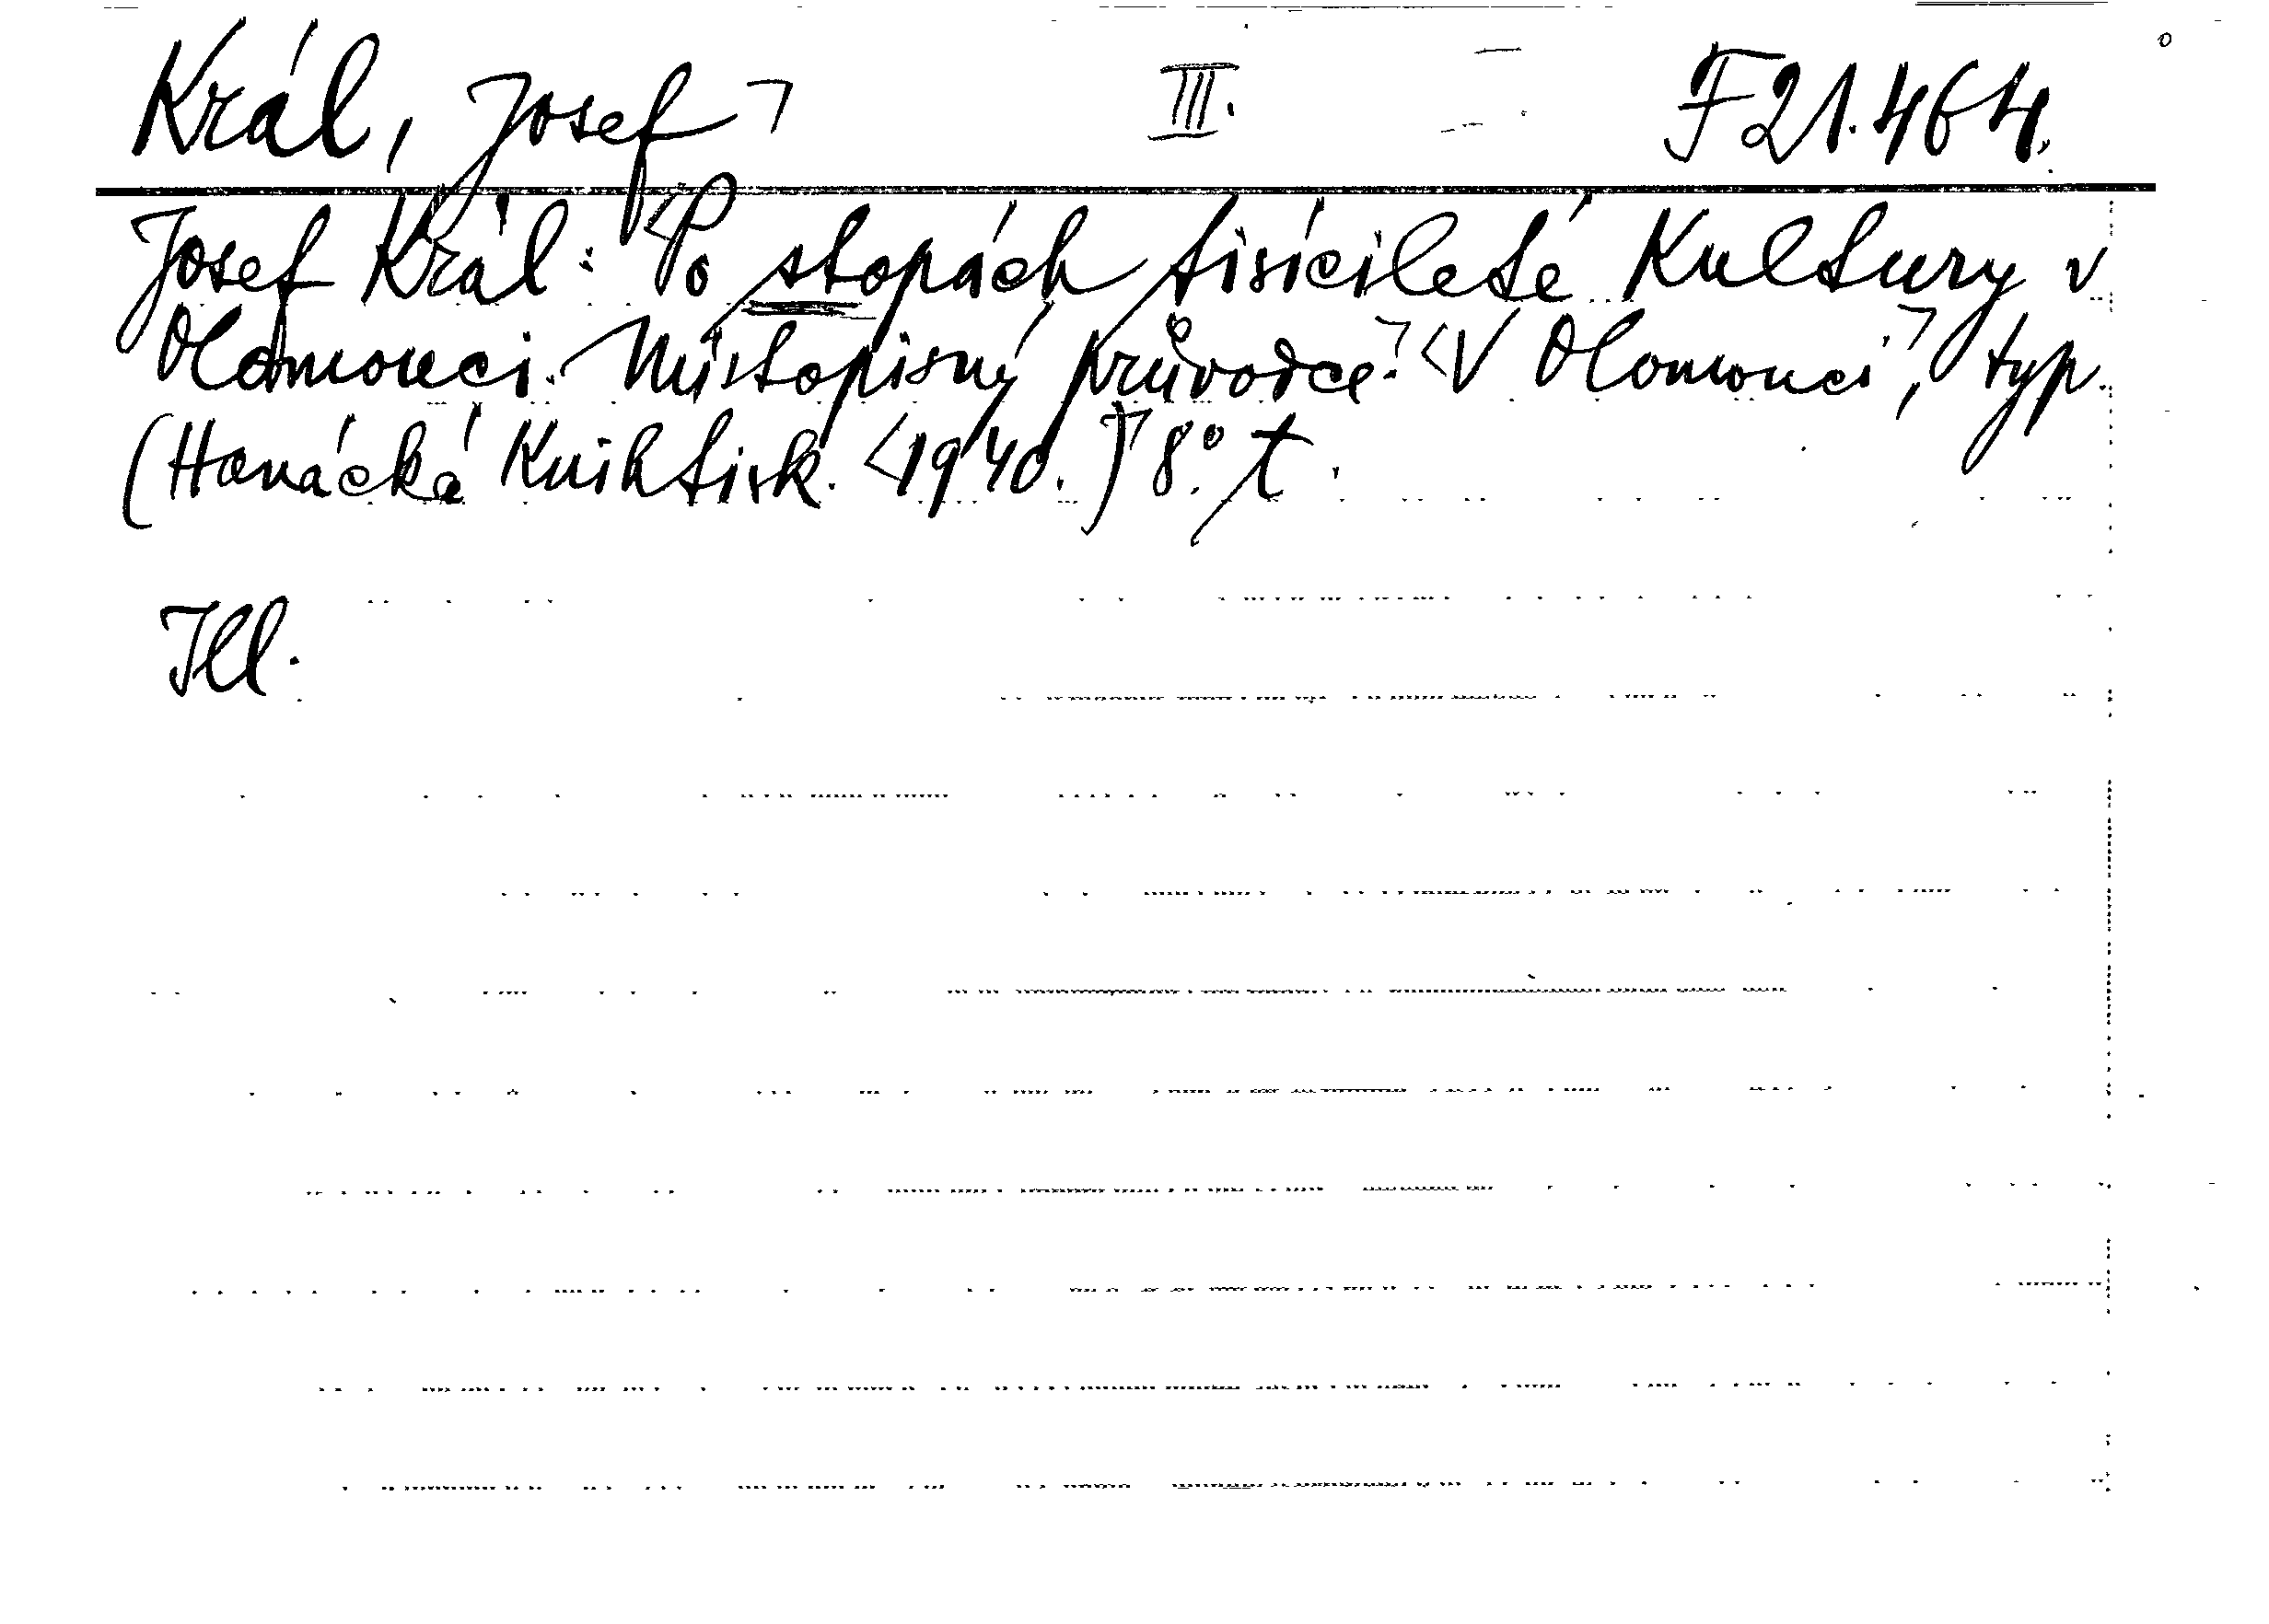 Král, Josef ꓶ III. F 21.464.
Josef Král: <Po stopách tisícileté Kultury v
Olomouci. Místopisný průvodce.ꓶ <V Olomouciꓶ, typ.
(Hanácká Knihtisk. <1940.)ꓶ 8°. t.
Ill.